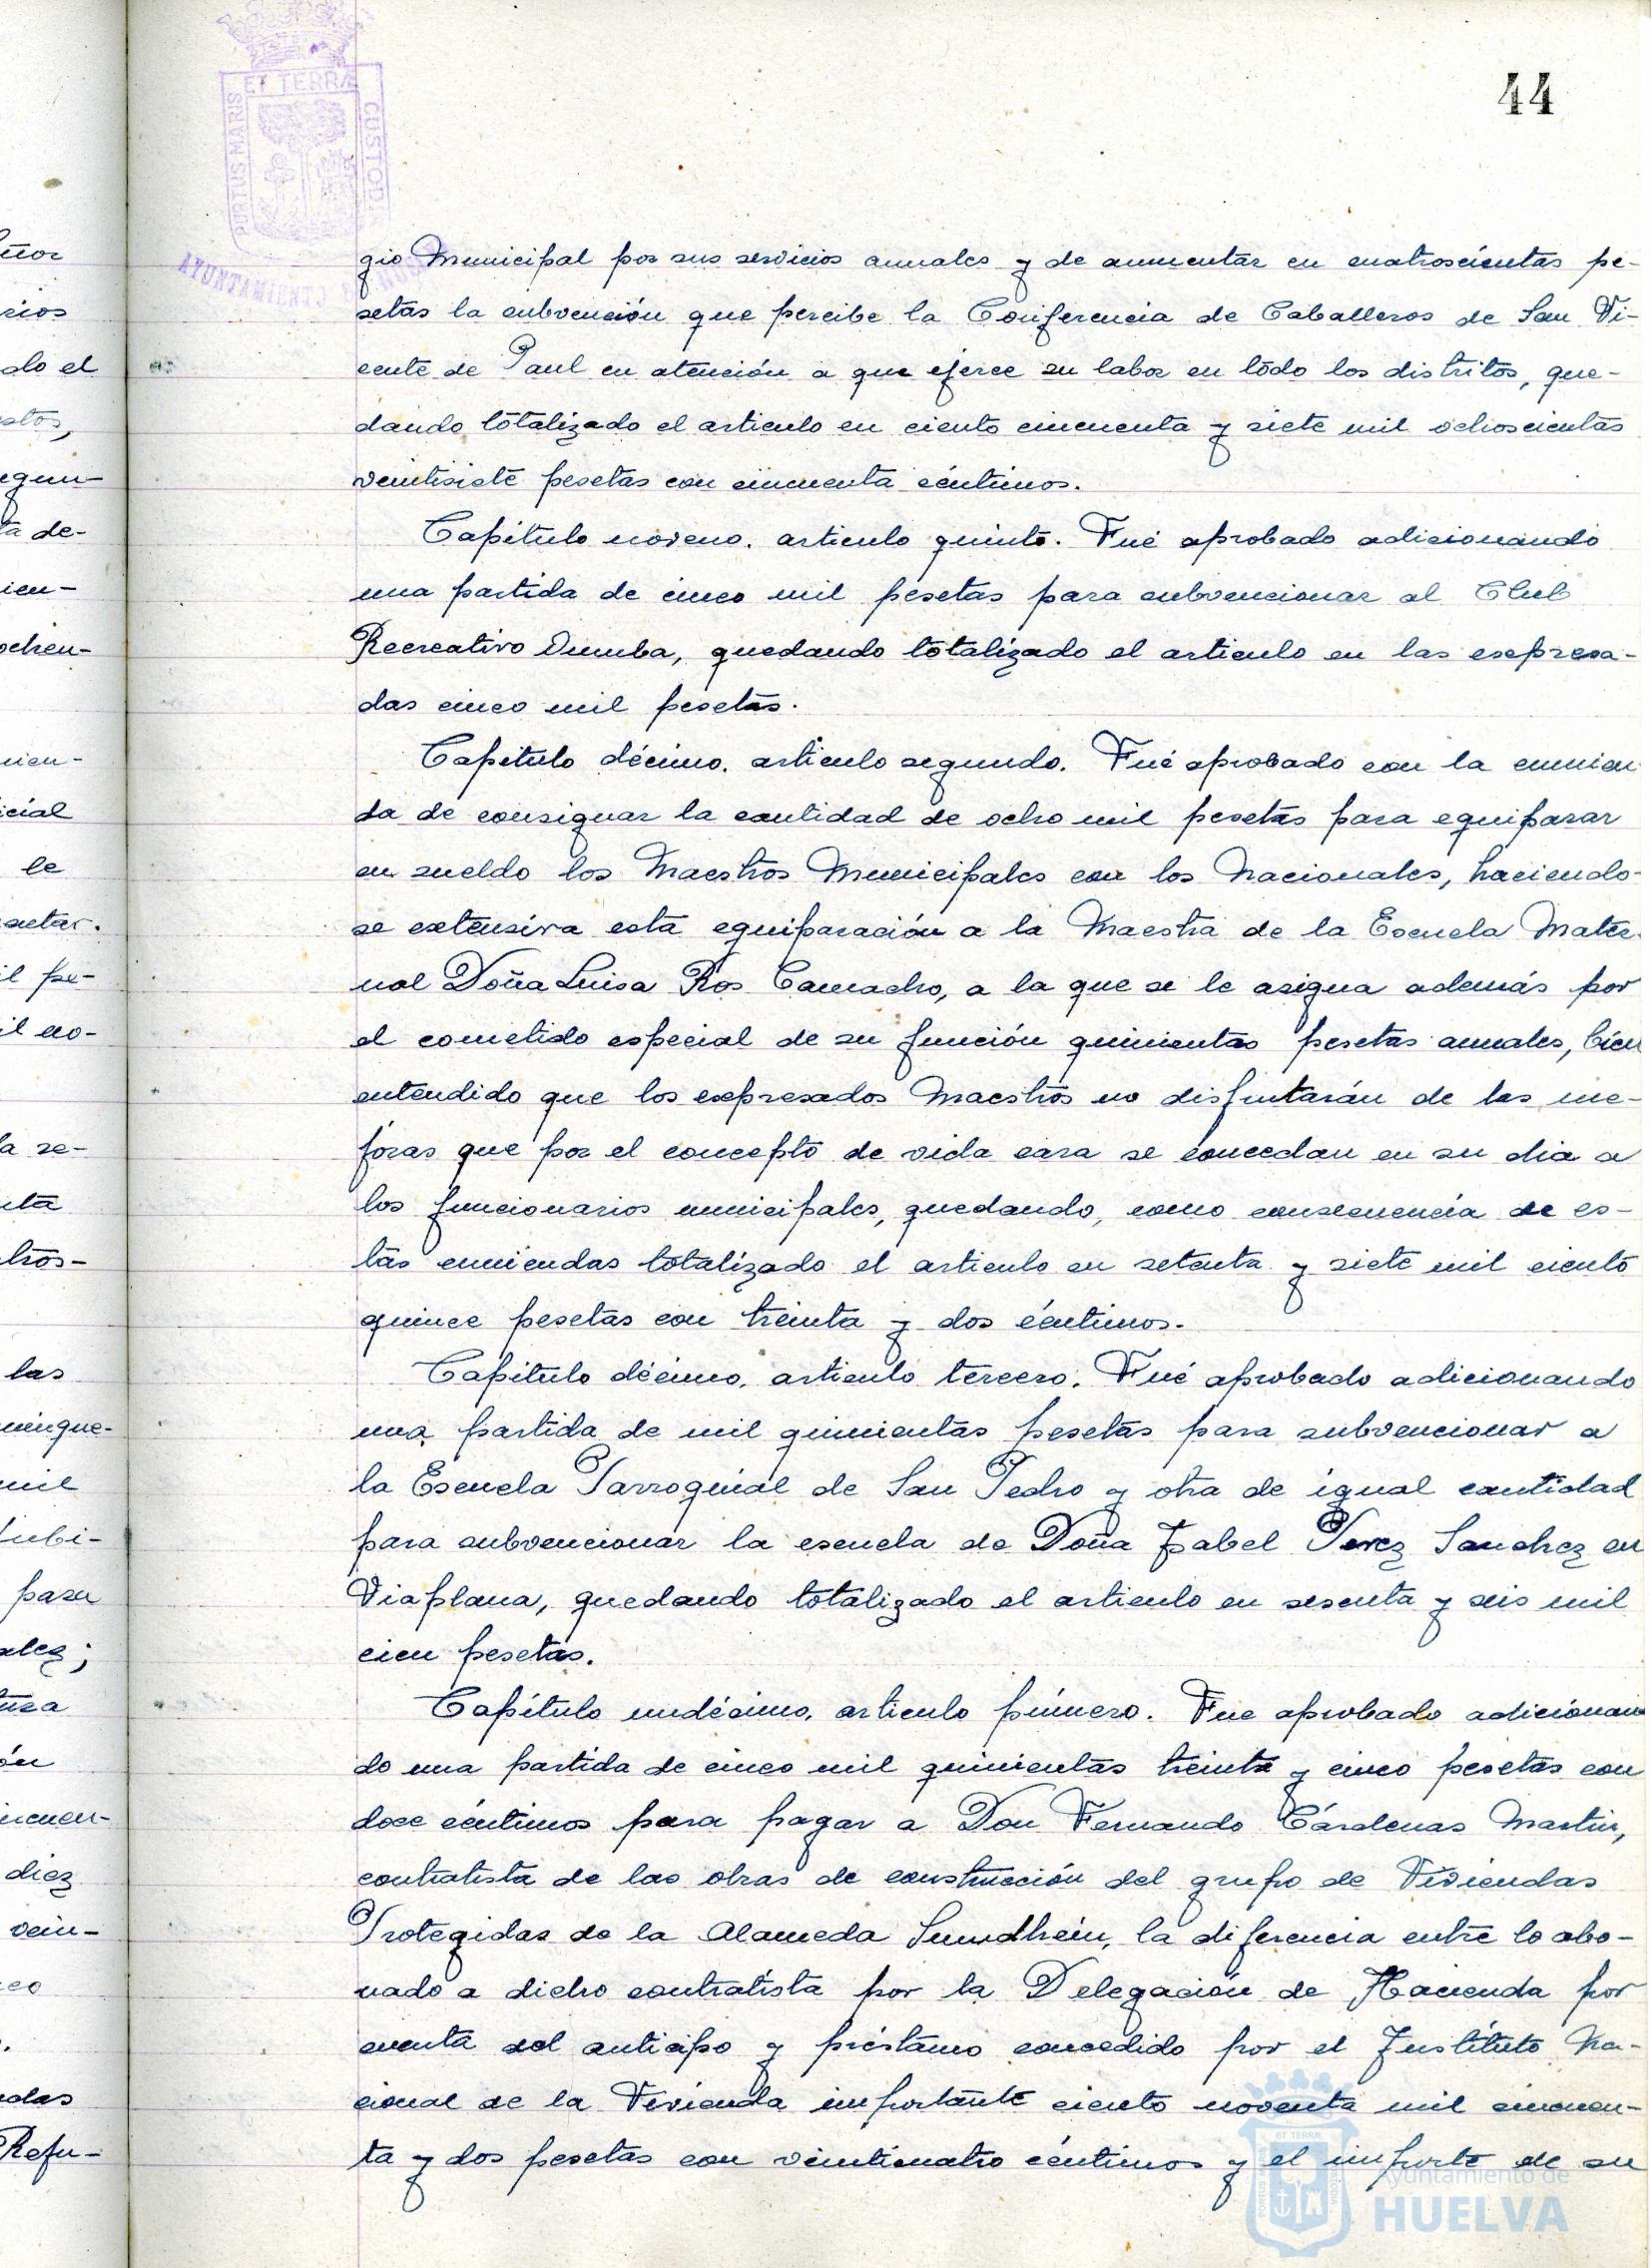 44
PORTUS MARIS ET TERRÆ CUSTODIA
AYUNTAMIENTO
gio Municipal por sus servicios anuales y de aumentar en cuatroscientas pe-
setas la subvención que percibe la Conferencia de Caballeros de San Vi-
cente de Paul en atención a que ejerce su labor en todo los distritos, que-
dando totalizado el articulo en ciento cincuenta y siete mil ochoscientas
veintisiete pesetas con cincuenta céntimos.
Capítulo noveno. articulo quinto. Fué aprobado adicionando
una partida de cinco mil pesetas para subvencionar al Club
Recreativo Onuba, quedando totalizado el articulo en las expresa-
das cinco mil pesetas.
Capitulo décimo. articulo segundo. Fué aprobado con la enmien
da de consignar la cantidad de ocho mil pesetas para equiparar
en sueldo los Maestros Municipales con los Nacionales, haciendo-
se extensiva esta equiparación a la Maestra de la Escuela Mater-
nal Doña Luisa Ros Camacho, a la que se le asigna además por
el cometido especial de su función quinientas pesetas anuales, bien
entendido que los expresados Maestros no disfrutarán de las me-
joras que por el concepto de vida cara se concedan en su dia a
los funcionarios municipales, quedando, como consecuencia de es-
tas enmiendas totalizado el articulo en setenta y siete mil ciento
quince pesetas con treinta y dos céntimos.
Capitulo décimo, articulo tercero. Fué aprobado adicionando
una partida de mil quinientas pesetas para subvencionar a
la Escuela Parroquial de San Pedro y otra de igual cantidad
para subvencionar la escuela de Doña Isabel Perez Sanchez en
Viaplana, quedando totalizado el articulo en sesenta y seis mil
cien pesetas.
Capítulo undécimo, articulo primero. Fue aprobado adicionan
do una partida de cinco mil quinientas treinta y cinco pesetas con
doce céntimos para pagar a Don Fernando Cárdenas Martin,
contratista de las obras de construcción del grupo de Viviendas
Protegidas de la Alameda Sundhein, la diferencia entre lo abo-
nado a dicho contratista por la Delegación de Hacienda por
cuenta del anticipo y préstamo concedido por el Instituto Na-
cional de la Vivienda importante ciento noventa mil cincuen-
ta y dos pesetas con veinticuatro céntimos y el importe de su
Ayuntamiento de
HUELVA